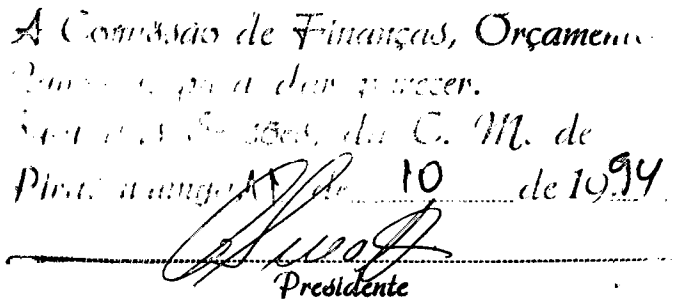 A Comissão de Finanças, Orçamento
para dar parecer.
Sala das Sessões, da C. M. de
Pirassununga, 11 de 10 de 1994
Presidente